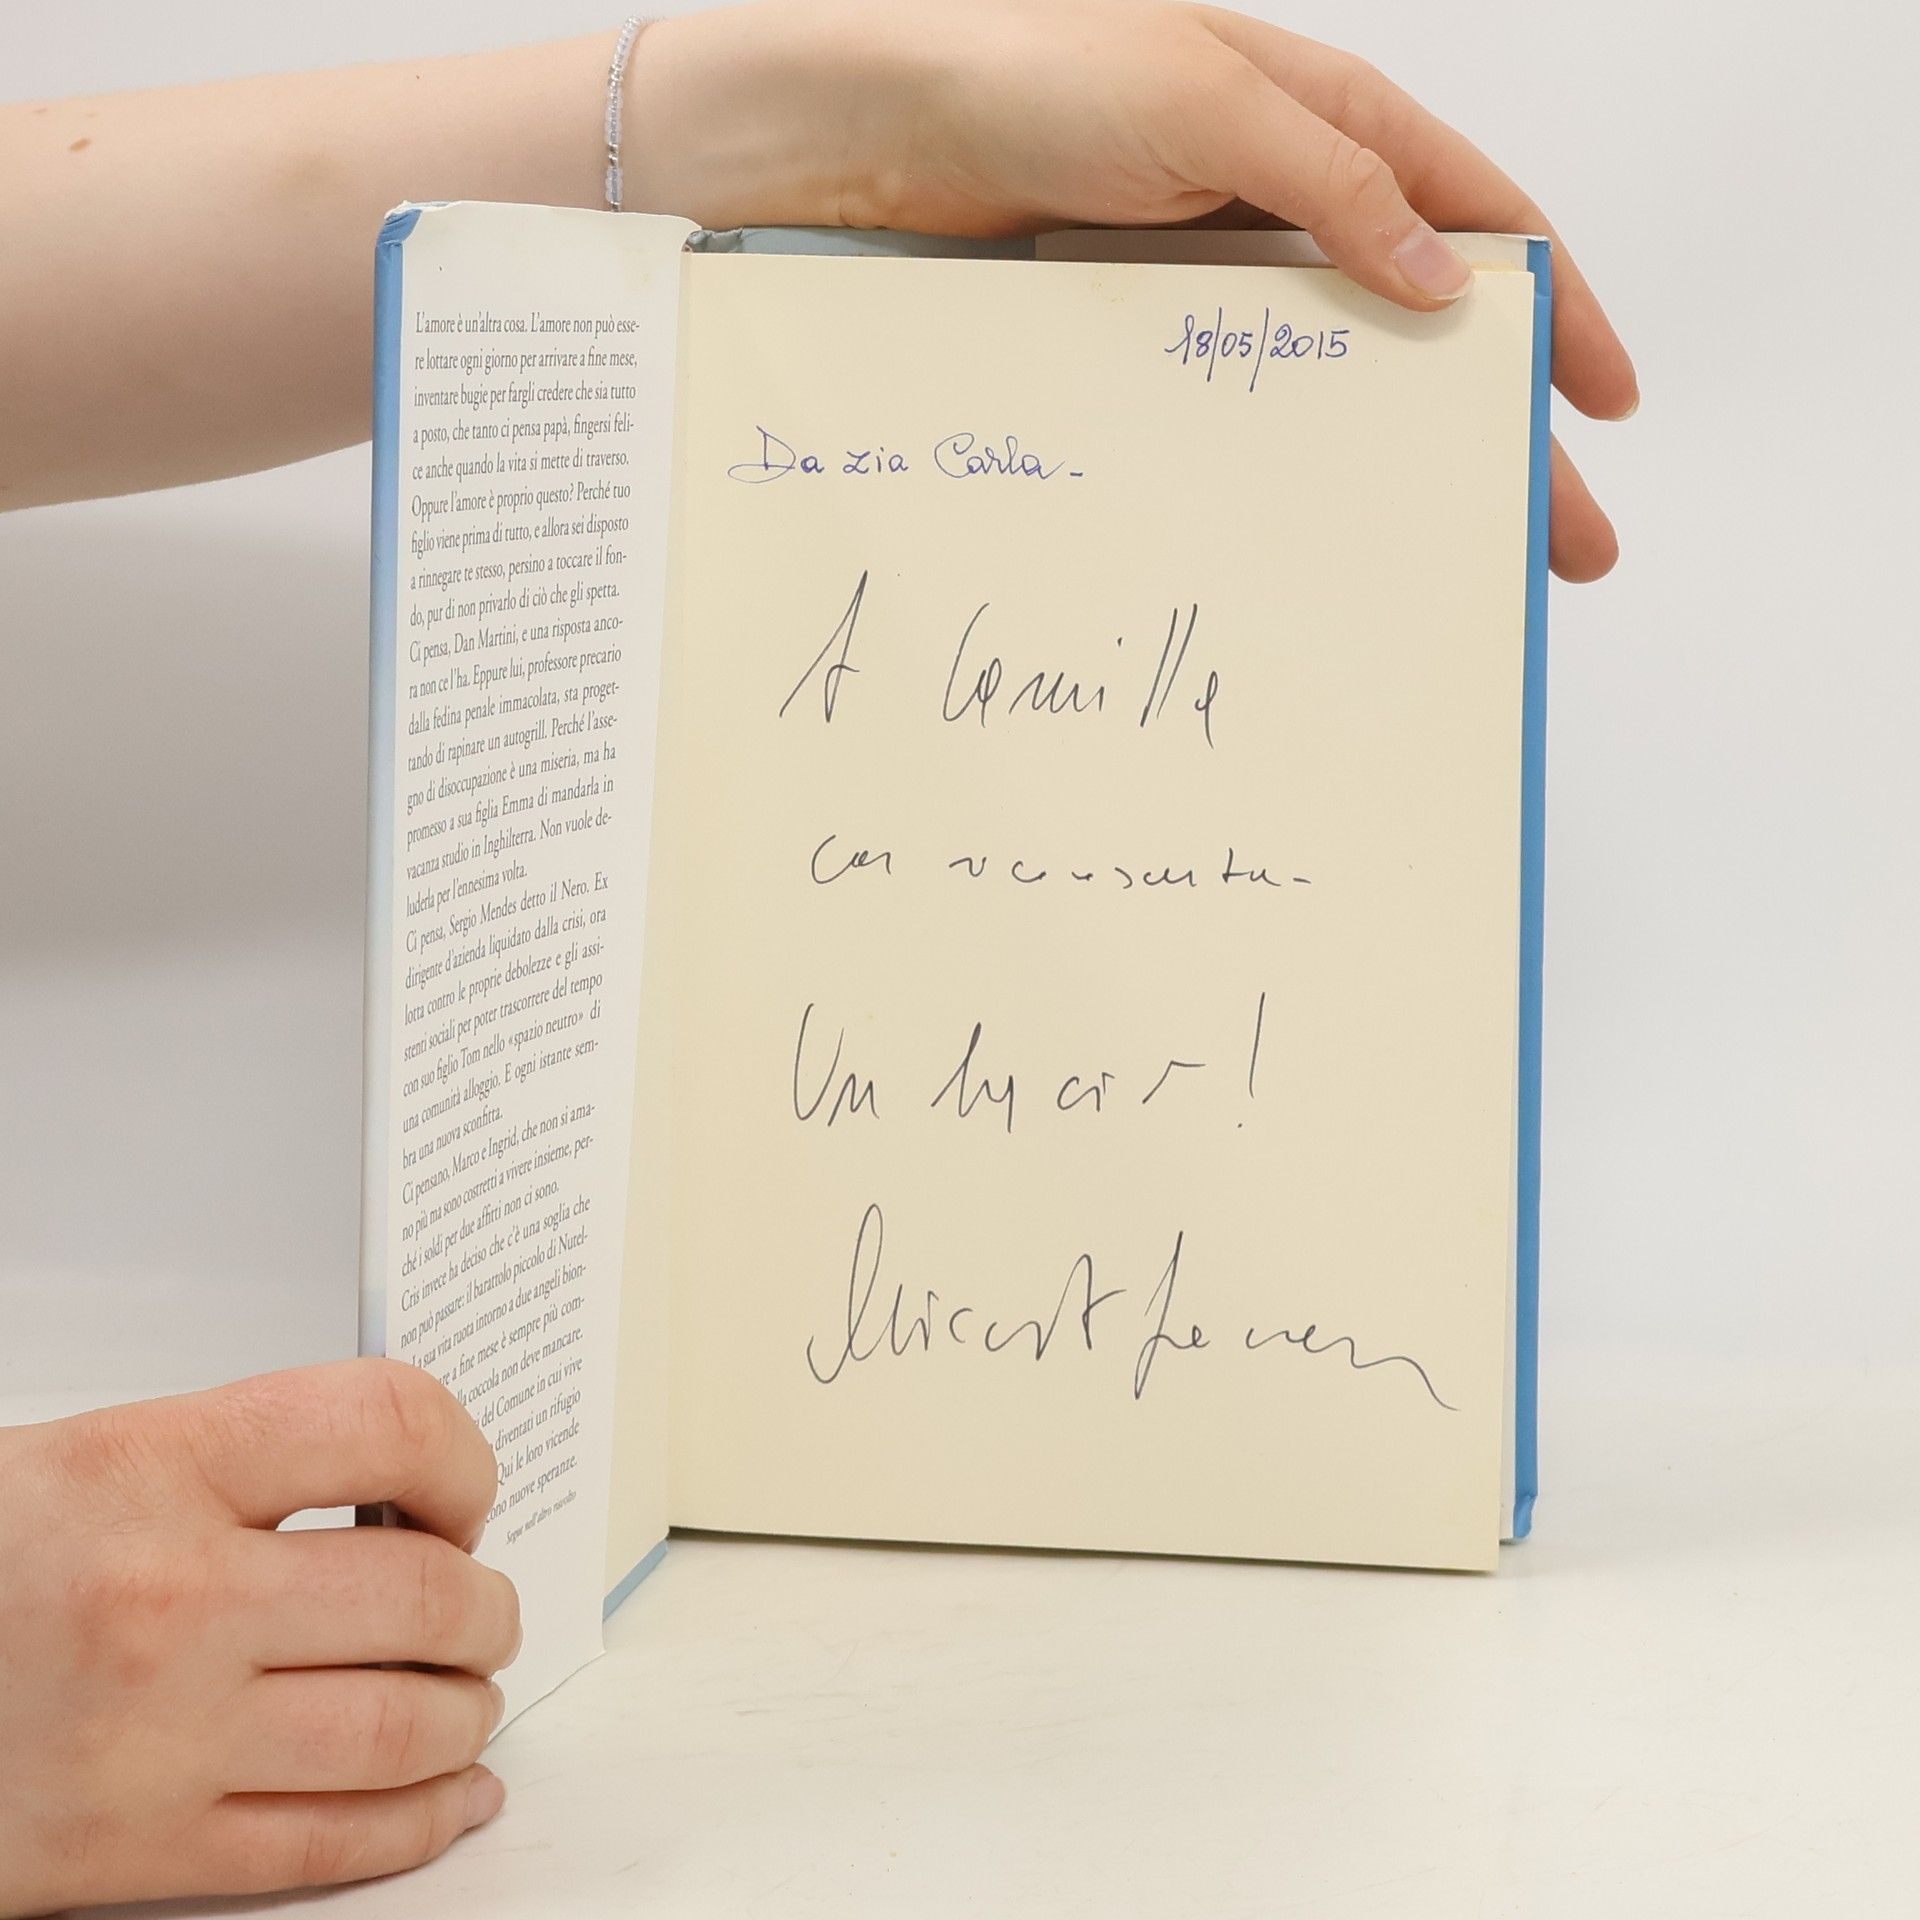 L'amore è un'altra cosa. L'amore non può esse-
re lottare ogni giorno per arrivare a fine mese,
inventare bugie per fargli credere che sia tutto
a posto, che tanto ci pensa papà, fingersi feli-
ce anche quando la vita si mette di traverso.
Oppure l'amore è proprio questo? Perché tuo
figlio viene prima di tutto, e allora sei disposto
a rinnegare te stesso, persino a toccare il fon-
do, pur di non privarlo di ciò che gli spetta.
Ci pensa, Dan Martini, e una risposta anco-
ra non ce l'ha. Eppure lui, professore precario
dalla fedina penale immacolata, sta proget-
tando di rapinare un autogrill. Perché l'asse-
gno di disoccupazione è una miseria, ma ha
promesso a sua figlia Emma di mandarla in
vacanza studio in Inghilterra. Non vuole de-
luderla per l'ennesima volta.
Ci pensa, Sergio Mendes detto il Nero. Ex
dirigente d'azienda liquidato dalla crisi, ora
lotta contro le proprie debolezze e gli assi-
stenti sociali per poter trascorrere del tempo
con suo figlio Tom nello «spazio neutro» di
una comunità alloggio. E ogni istante sem-
bra una nuova sconfitta.
Ci pensano, Marco e Ingrid, che non si ama-
no più ma sono costretti a vivere insieme, per-
ché i soldi per due affitti non ci sono.
Cris invece ha deciso che c'è una soglia che
non può passare: il barattolo piccolo di Nutel-
La sua vita ruota intorno a due angeli bion-
are a fine mese è sempre più com-
lla coccola non deve mancare.
i del Comune in cui vive
diventati un rifugio
Qui le loro vicende
cono nuove speranze.
Segue nell'altro risvolto
18/05/2015
Da zia Carla-
A Camilla
con
Un bacio!